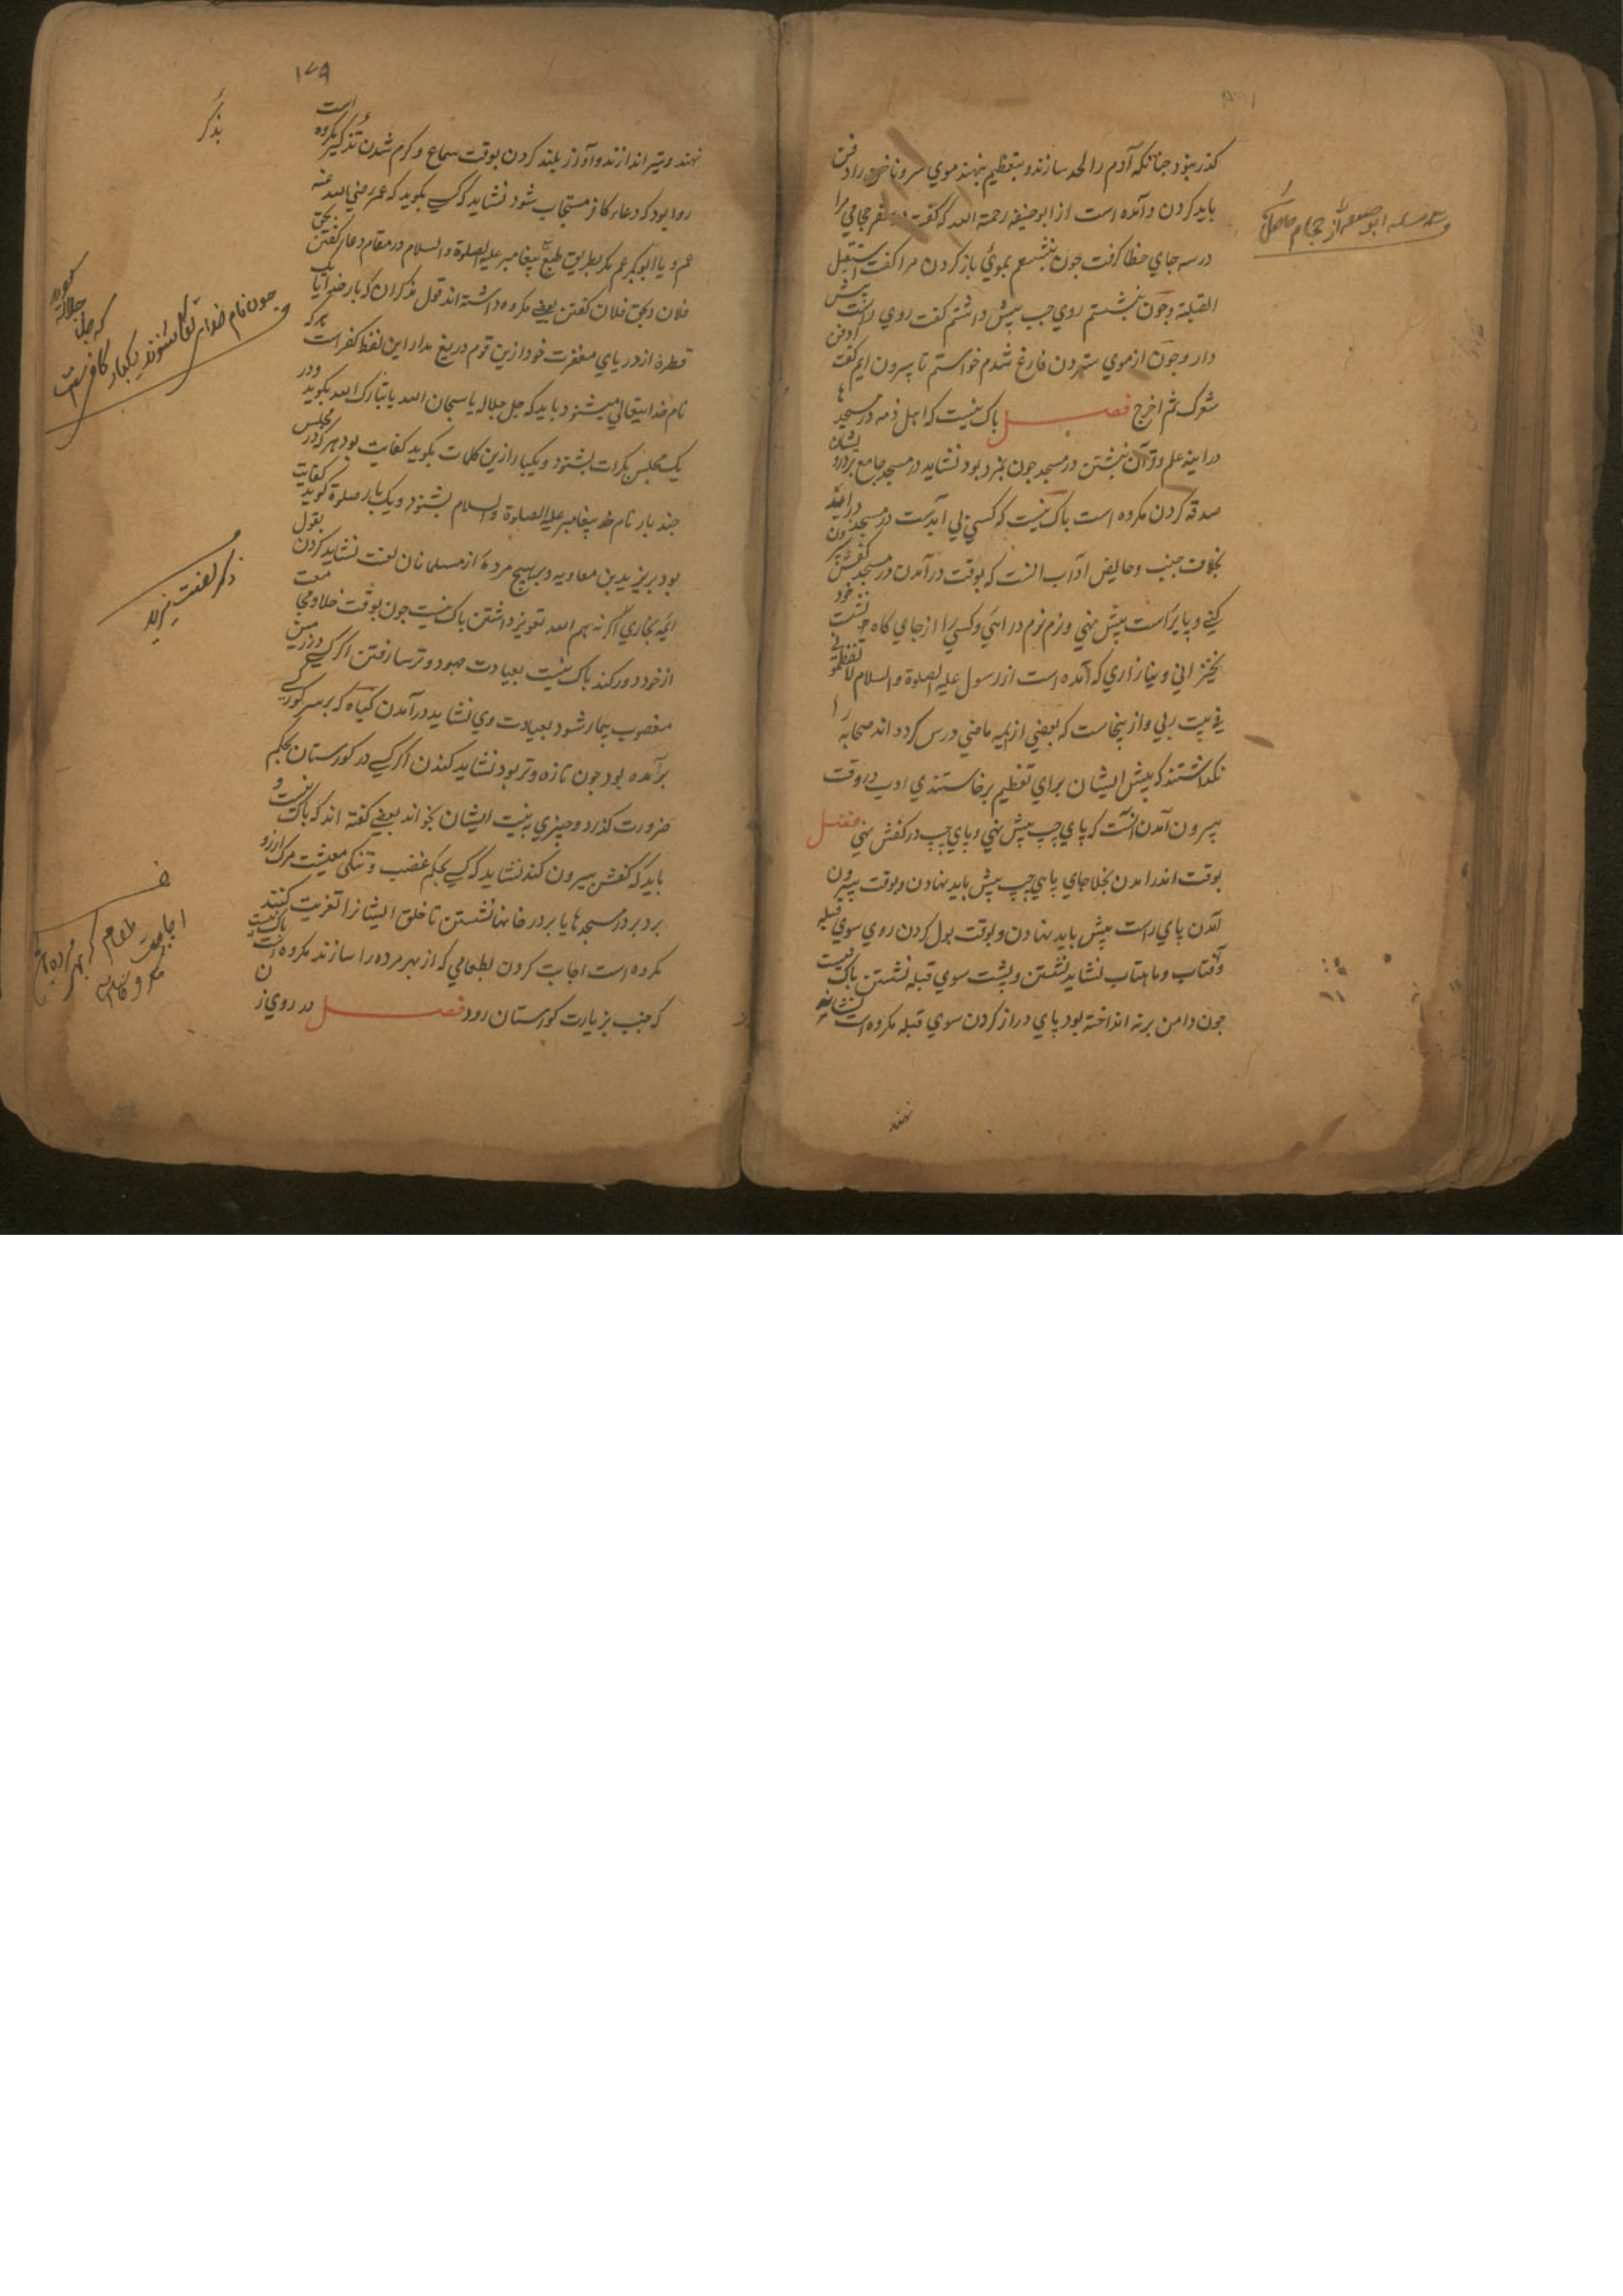 کذر بنود جنانکه آدم را لحد سازند و بتعظیم بنهند موی سر و ناخن را دفن
باید کردن و آمده است از ابو حنیفه رحمة الله که کفت در سفر حجامی مرا
در سه جای خطا کرفت جون بنشستم بموی باز کردن مرا کفت استقبل
القبلة و جون بنشستم روی جب پیش داشتم کفت روی راست پیش
دار و جون از موی ستردن فارغ شدم خواستم تا بیرون ایم کفت ادفن
شعرک ثم اخرج فصل باک نیست که اهل ذمه در مسجدها
درایند علم و قرآن نبشتن در مسجد جون بمزد بود نشاید در مسجد جامع بردرویشان
صدقه کردن مکروه است باک نیست که کسی بی آبدست در مسجد درایند
بخلاف جنب و حایض آداب انست که بوقت درآمدن در مسجد کفش بیرون
کنی و پای راست پیش نهی و نرم نرم درائی و کسی را از جای کاه نشست خود
نخیزانی و نیازاری که آمده است از رسول علیه الصلوة والسلام لا تعظمونی
فی بیت ربی و از ینجاست که بعضی از ایمه ماضی درس کرده اند صحابه را
نکذاشتند که پیش ایشان برای تعظیم برخاستندی ادب در وقت
بیرون آمدن انست که پای چپ پیش نهی و پای چپ در کفش نهی فصل
بوقت اندرامدن بخلا جای پای چپ پیش باید نهادن و بوقت بیرون
آمدن پای راست پیش باید نهادن و بوقت بول کردن روی سوی قبله
و آفتاب و ماهتاب نشاید نشستن و پشت سوی قبله نشستن باک نیست
جون دامن برنه انداخته بود پای دراز کردن سوی قبله مکروه است
نهند
از حجام حاصل
۱۷۹
نهند و تیر اندازند و آواز بلند کردن بوقت سماع و کرم شدن تذکیر مکروه است
روا بود که دعاء کافر مستجاب شود نشاید که کسی بکوید که عمر رضی الله عنه
عم و یا ابو بکر عم مکر بطریق طبع پیغامبر علیه الصلوة والسلام در مقام دعا کفتن بحق
فلان و بحق فلان کفتن بعضی مکروه داشته اند قول مذکران که بار خدایا یک
قطره از دریای مغفرت خود ازین قوم دریغ مدار این لفظ کفر است هرکه
نام خدایتعالی میشنود باید که جل جلاله یا سبحان الله یا تبارک الله بکوید و در
یک مجلس بکرات بشنود و یکبار ازین کلمات بکوید کفایت بود هرکه در مجلس
جند بار نام پیغامبر علیه الصلوة والسلام بشنود و یک بار صلوة کوید کفایت
بود بر یزید بن معاویه و بر هیچ مرده از مسلمانان لعنت نشاید کردن بقول
ایمه بخاری اکر نه بهم الله تعویذ داشتن باک نیست جون بوقت خلا و مجامعت
از خود دور کند باک نیست بعیادت جهود و ترسا رفتن اکر کسی در زمین
مغصوب بیمار شود بعیادت وی نشاید درآمدن کیاه که بر سر کور کسی
برآمده بود جون تازه و تر بود نشاید کندن اکر کسی در کورستان بحکم
ضرورت کذرد و چیزی به نیت ایشان بخواند بعضی کفته اند که باک نیست و
باید که کفش بیرون کند نشاید که کسی بحکم غضب و تنکی معیشت مرک ارزو
برد بر در مسجدها یا بر در خانها نشستن تا خلق ایشانرا تعزیت کنند باک نیست
مکروه است اجابت کردن بطعامی که از بهر مرده را سازند مکروه است
که جنب بزیارت کورستان رود فصل در روی زن
بذکر
جون نام خدای تعالی بشنوند یکبار کافی است
که جل جلاله کوید
ذکر لعنت یزید
ف
اجابت طعام که بهر مرده